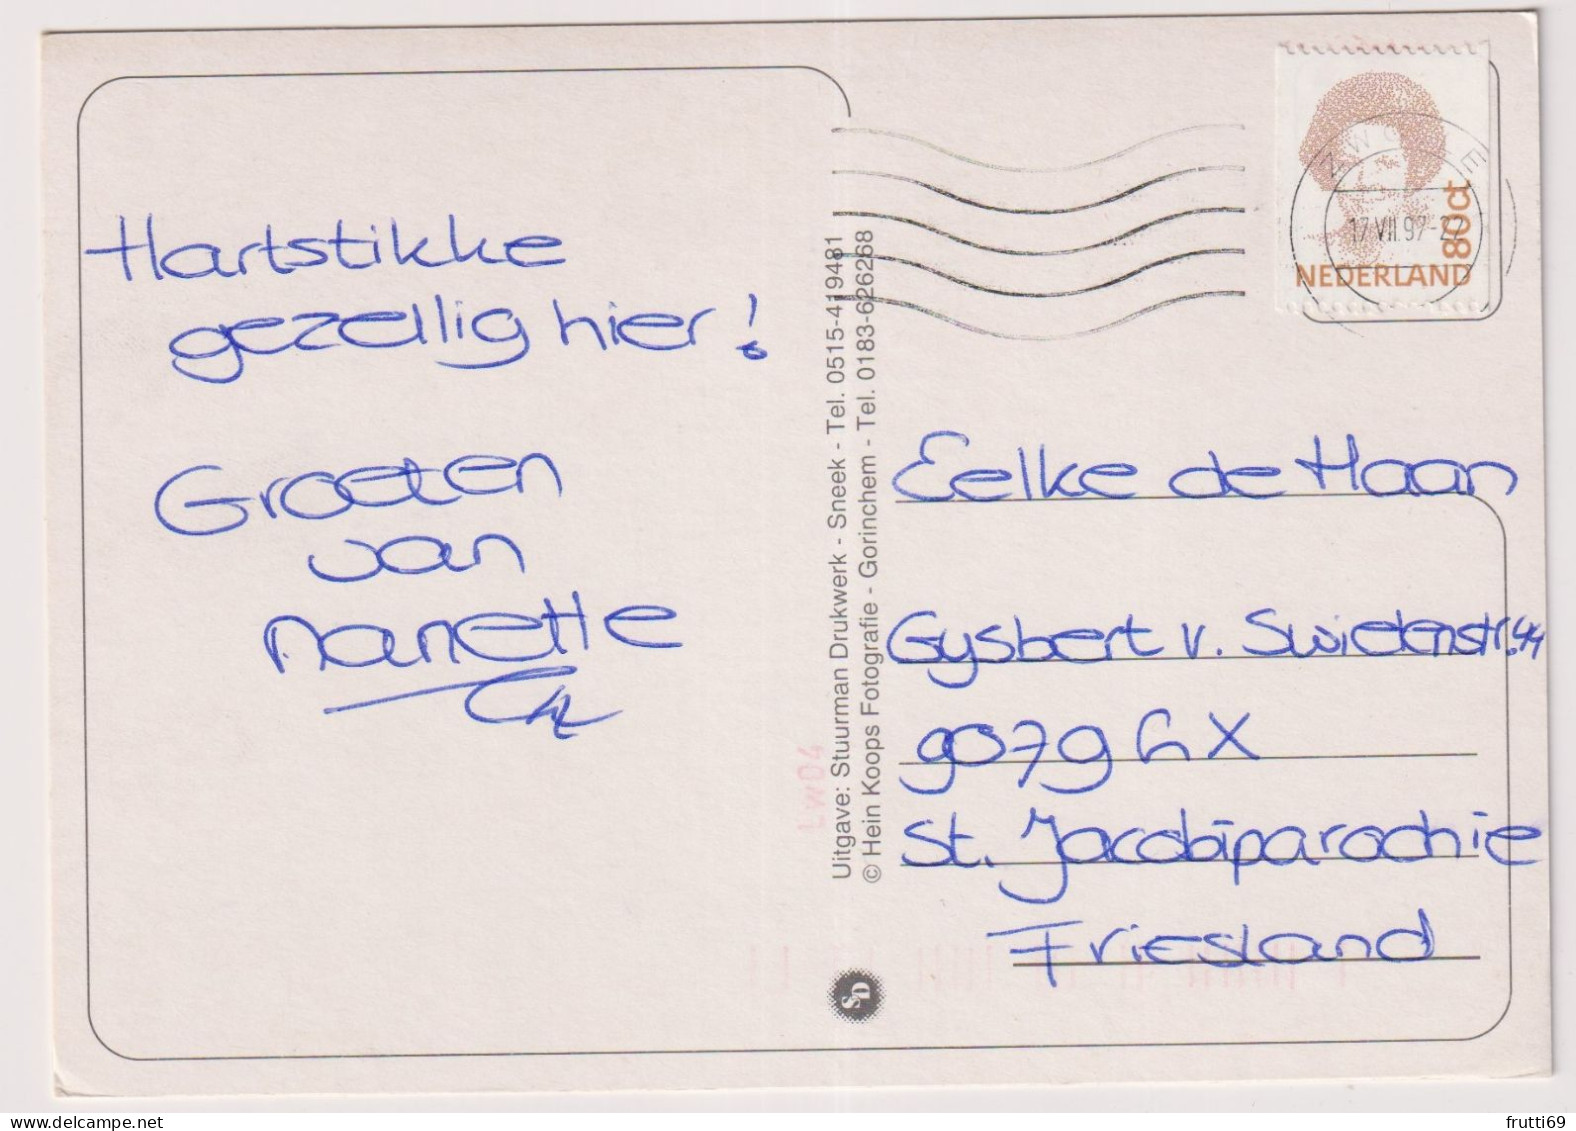 Hartstikke
gezellig hier!
Groeten
van
nanette
Uitgave: Stuurman Drukwerk - Sneek - Tel. 0515-419481
© Hein Koops Fotografie - Gorinchem - Tel. 0183-626268
Lw04
SD
ZWOLLE
17.VII.97-22
80ct
NEDERLAND
Eelke de Haan
Gysbert v. Swietenstr. 44
9079 GX
St. Jacobiparochie
Friesland
frutti69